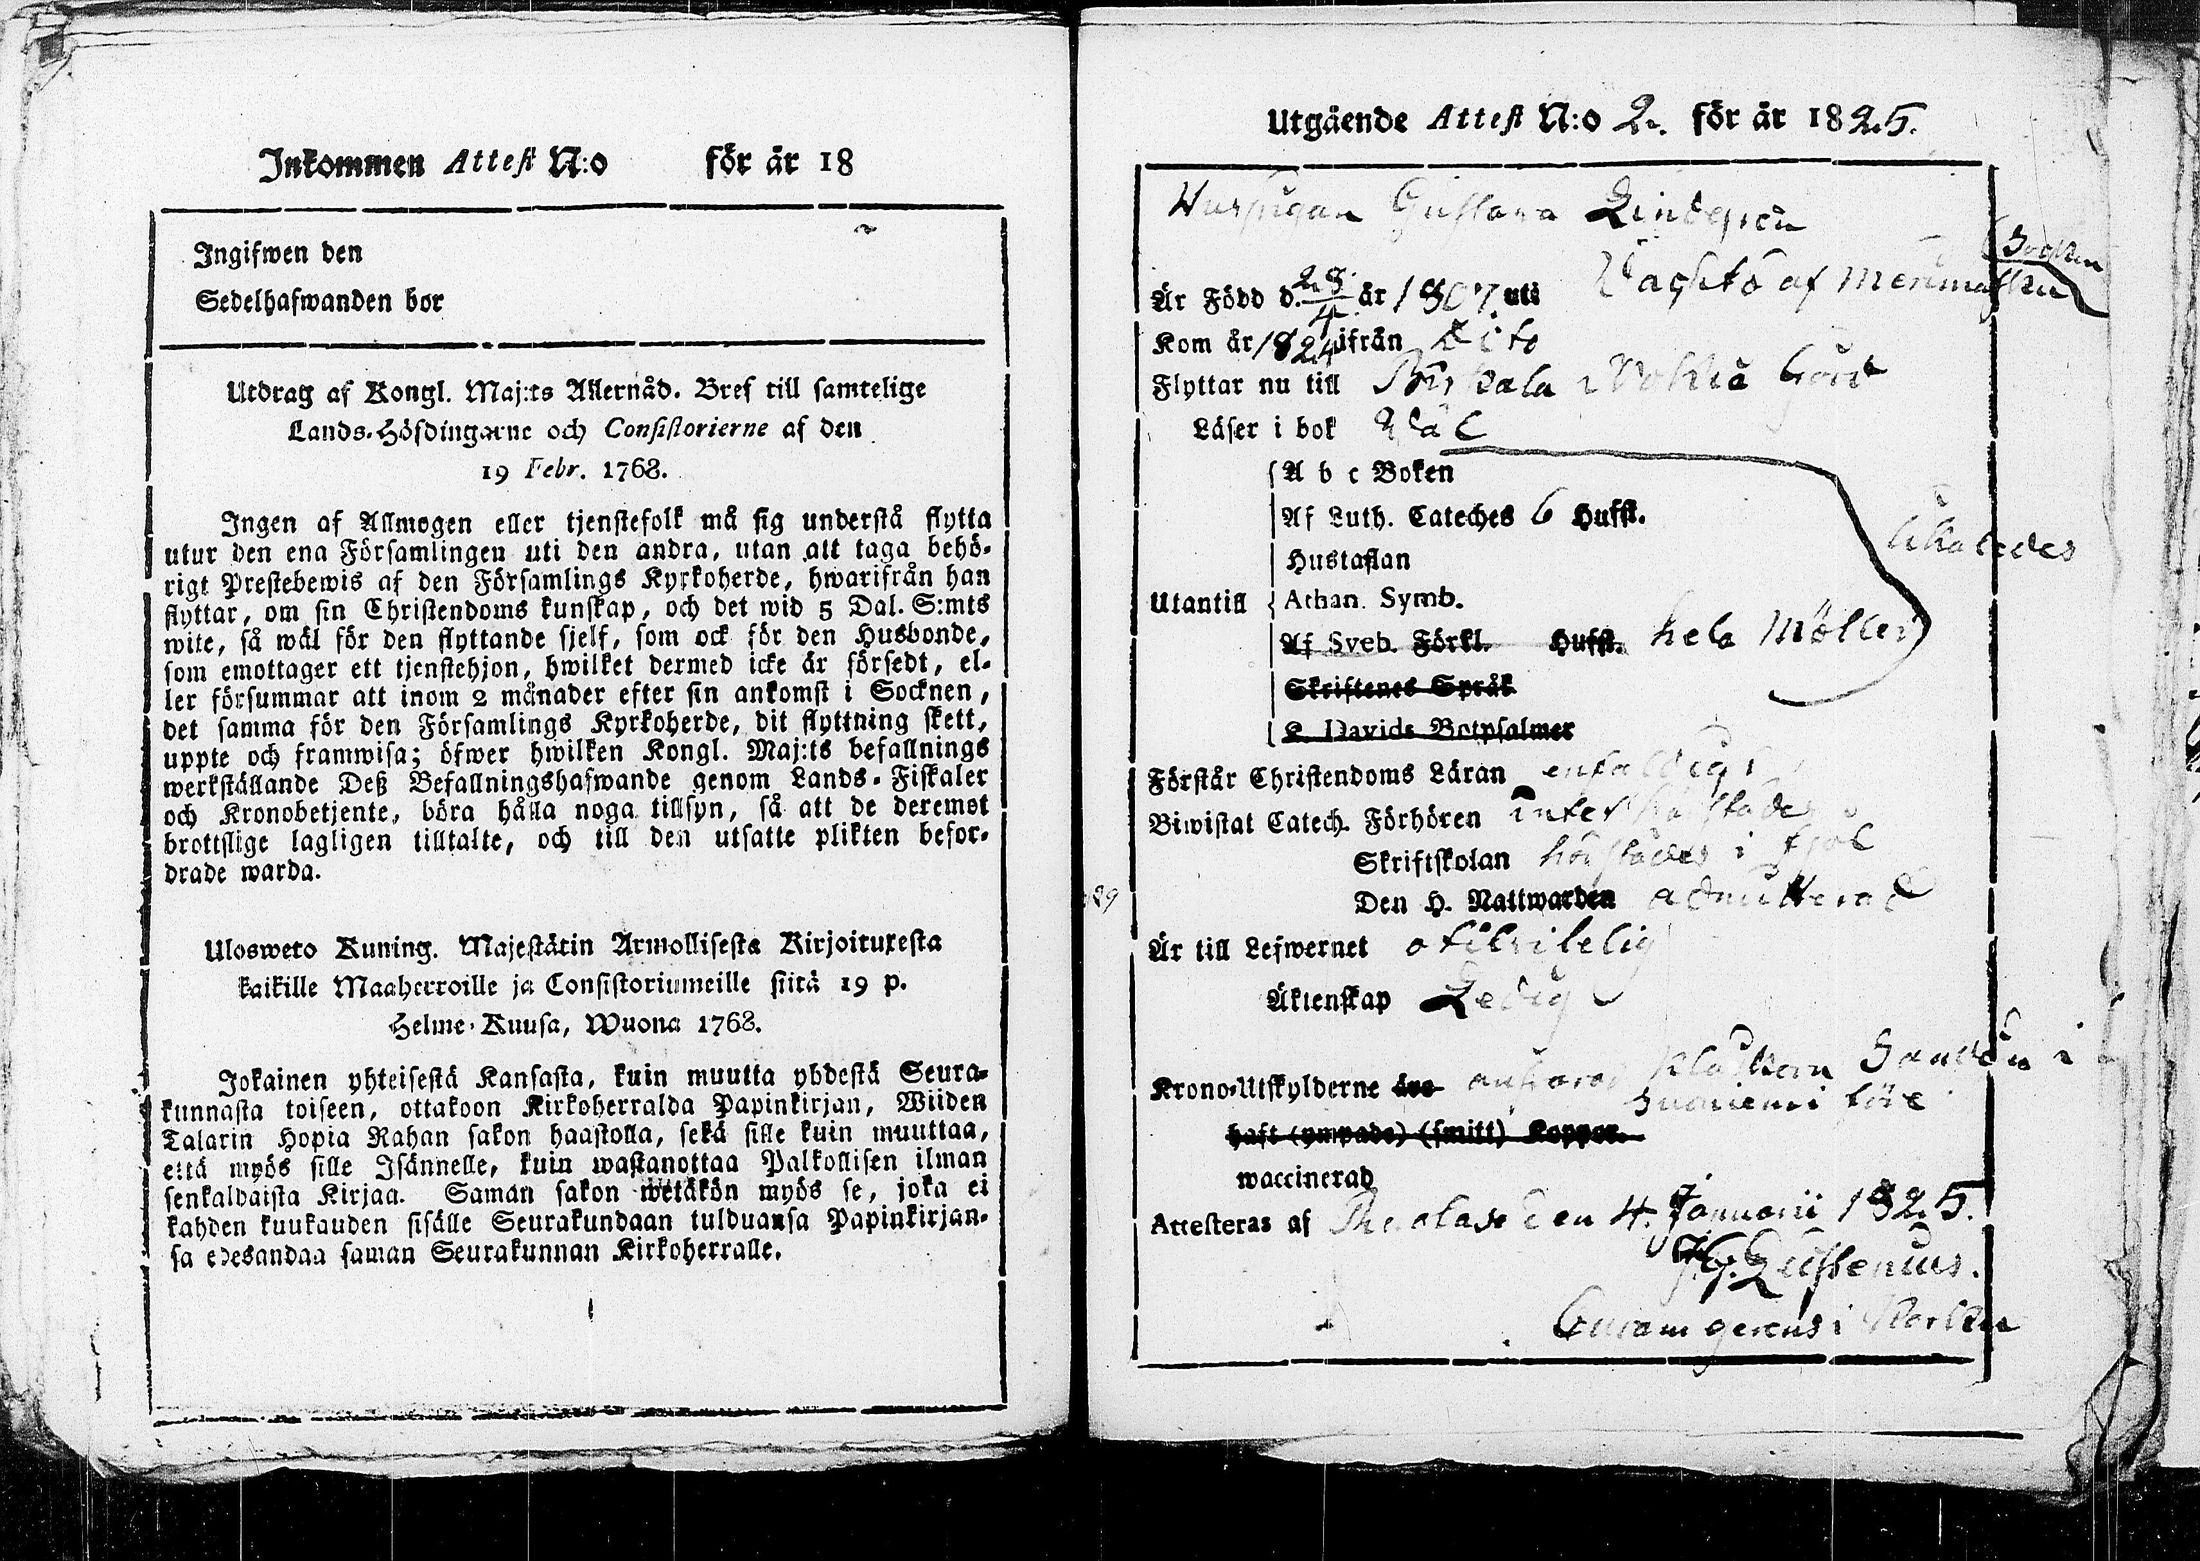 Inkommen Attest N:o för år 18
Ingifwen den
Sedelhafwanden bor
Utdrag af Kongl. Maj:ts Allernåd. Bref till samtelige
Lands-Höfdingarne och Consistorierne af den
19 Febr. 1768.
Ingen af Allmogen eller tjenstefolk må sig understå flytta
utur den ena Församlingen uti den andra, utan att taga behö-
rigt Prestebewis af den Församlings Kyrkoherde, hwarifrån han
flyttar, om sin Christendoms kunskap, och det wid 5 Dal. S:mts
wite, så wäl för den flyttande sjelf, som ock för den Husbonde,
som emottager ett tjenstehjon, hwilket dermed icke är försedt, el-
ler försummar att inom 2 månader efter sin ankomst i Socknen,
det samma för den Församlings Kyrkoherde, dit flyttning skett,
uppte och framwisa; öfwer hwilken Kongl. Maj:ts befallnings
werkställande Deß Befallningshafwande genom Lands-Fiskaler
och Kronobetjente, böra hålla noga tillsyn, så att de deremot
brottslige lagligen tilltalte, och till den utsatte plikten befor-
drade warda.
Ulosweto Kuning. Majestätin Armollisesta Kirjoituxesta
kaikille Maaherroille ja Consistoriumeille siitä 19 p.
Helme-Kuusa, Wuona 1768.
Jokainen yhteisestä Kansasta, kuin muutta yhdestä Seura-
kunnasta toiseen, ottakoon Kirkoherralda Papinkirjan, Wiiden
Talarin Hopia Rahan sakon haastolla, sekä sille kuin muuttaa,
että myös sille Isännelle, kuin wastanottaa Palkollisen ilman
senkaldaista Kirjaa. Saman sakon wetäkön myös se, joka ei
kahden kuukauden sisälle Seurakundaan tulduansa Papinkirjan-
sa edesandaa saman Seurakunnan Kirkoherralle.
Utgående Attest N:o 2. för år 1825.
Huspigan Gustava Lindgren
Är Född d. 28/4 år 1807 uti
Kom år 1824 ifrån dito
Flyttar nu till Birkala Nokia Gård
Läser i bok wäl
A b c Boken
Af Luth. Cateches 6 Huffst.
likaledes
Hustaflan
Utantill Athan. Symb.
Af Sveb. Förkl. Huffst. hela Möller
Skriftenes Språk
K. Davids Botpsalmer
Förstår Christendoms Läran enfaldigt
Biwistat Catech. Förhören
Skriftskolan i fjol
Den H. Nattwarden admitterad
Är till Lefwernet otilvitelig
Äktenskap Ledig
Krono-Utskylderne äro ansvarar
haft (ympade) (smitt) Koppor.
waccinerad
Attesteras af den 4. Januarii 1825.
Curam gerens i